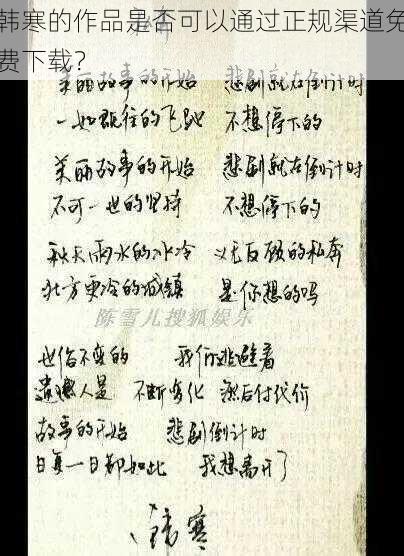 韩寒的作品是否可以通过正规渠道免
费下载？
美丽故事的开始 悲剧就在倒计时
一如既往的飞驰 不想停下的
美丽故事的开始 悲剧就在倒计时
不可一世的坚持 不想停下的
秋天雨水的冰冷 义无反顾的私奔
北方更冷的城镇 是你想的吗
陈雪儿搜狐娱乐
世俗不变的 我们逃避着
遗憾人是 不断劣化 然后付代价
故事的开始 悲剧倒计时
日复一日都如此 我想离开了
韩寒